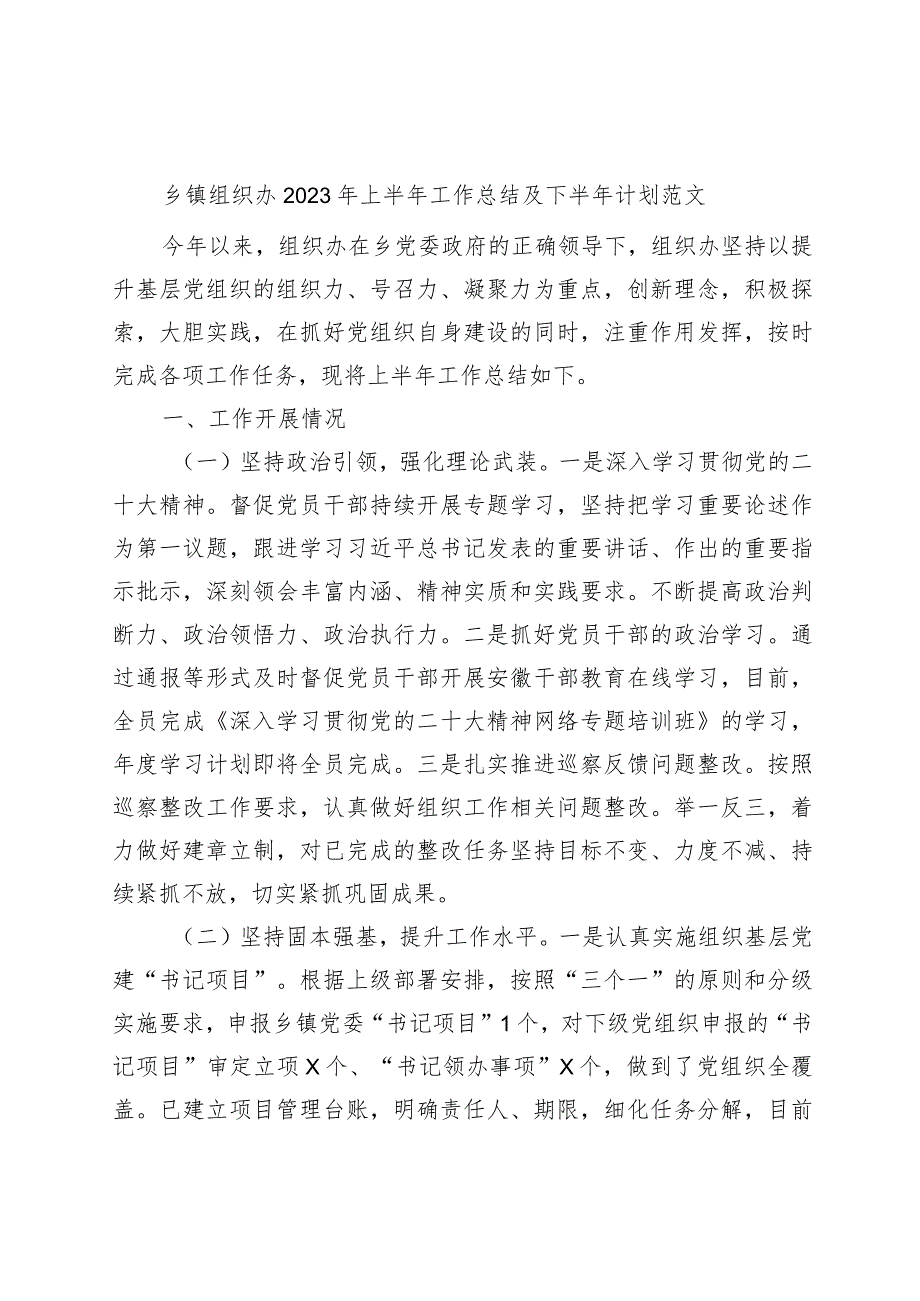 乡镇组织办 2023 年上半年工作总结及下半年计划范文
今年以来，组织办在乡党委政府的正确领导下，组织办坚持以提
升基层党组织的组织力、号召力、凝聚力为重点，创新理念，积极探
索，大胆实践，在抓好党组织自身建设的同时，注重作用发挥，按时
完成各项工作任务，现将上半年工作总结如下。
一、工作开展情况
（一）坚持政治引领，强化理论武装。一是深入学习贯彻党的二
十大精神。督促党员干部持续开展专题学习，坚持把学习重要论述作
为第一议题，跟进学习习近平总书记发表的重要讲话、作出的重要指
示批示，深刻领会丰富内涵、精神实质和实践要求。不断提高政治判
断力、政治领悟力、政治执行力。二是抓好党员干部的政治学习。通
过通报等形式及时督促党员干部开展安徽干部教育在线学习，目前，
全员完成《深入学习贯彻党的二十大精神网络专题培训班》的学习，
年度学习计划即将全员完成。三是扎实推进巡察反馈问题整改。按照
巡察整改工作要求，认真做好组织工作相关问题整改。举一反三，着
力做好建章立制，对已完成的整改任务坚持目标不变、力度不减、持
续紧抓不放，切实紧抓巩固成果。
（二）坚持固本强基，提升工作水平。一是认真实施组织基层党
建“书记项目”。根据上级部署安排，按照“三个一”的原则和分级
实施要求，申报乡镇党委“书记项目”1 个，对下级党组织申报的“书
记项目”审定立项 X 个、“书记领办事项”X 个，做到了党组织全覆
盖。已建立项目管理台账，明确责任人、期限，细化任务分解，目前